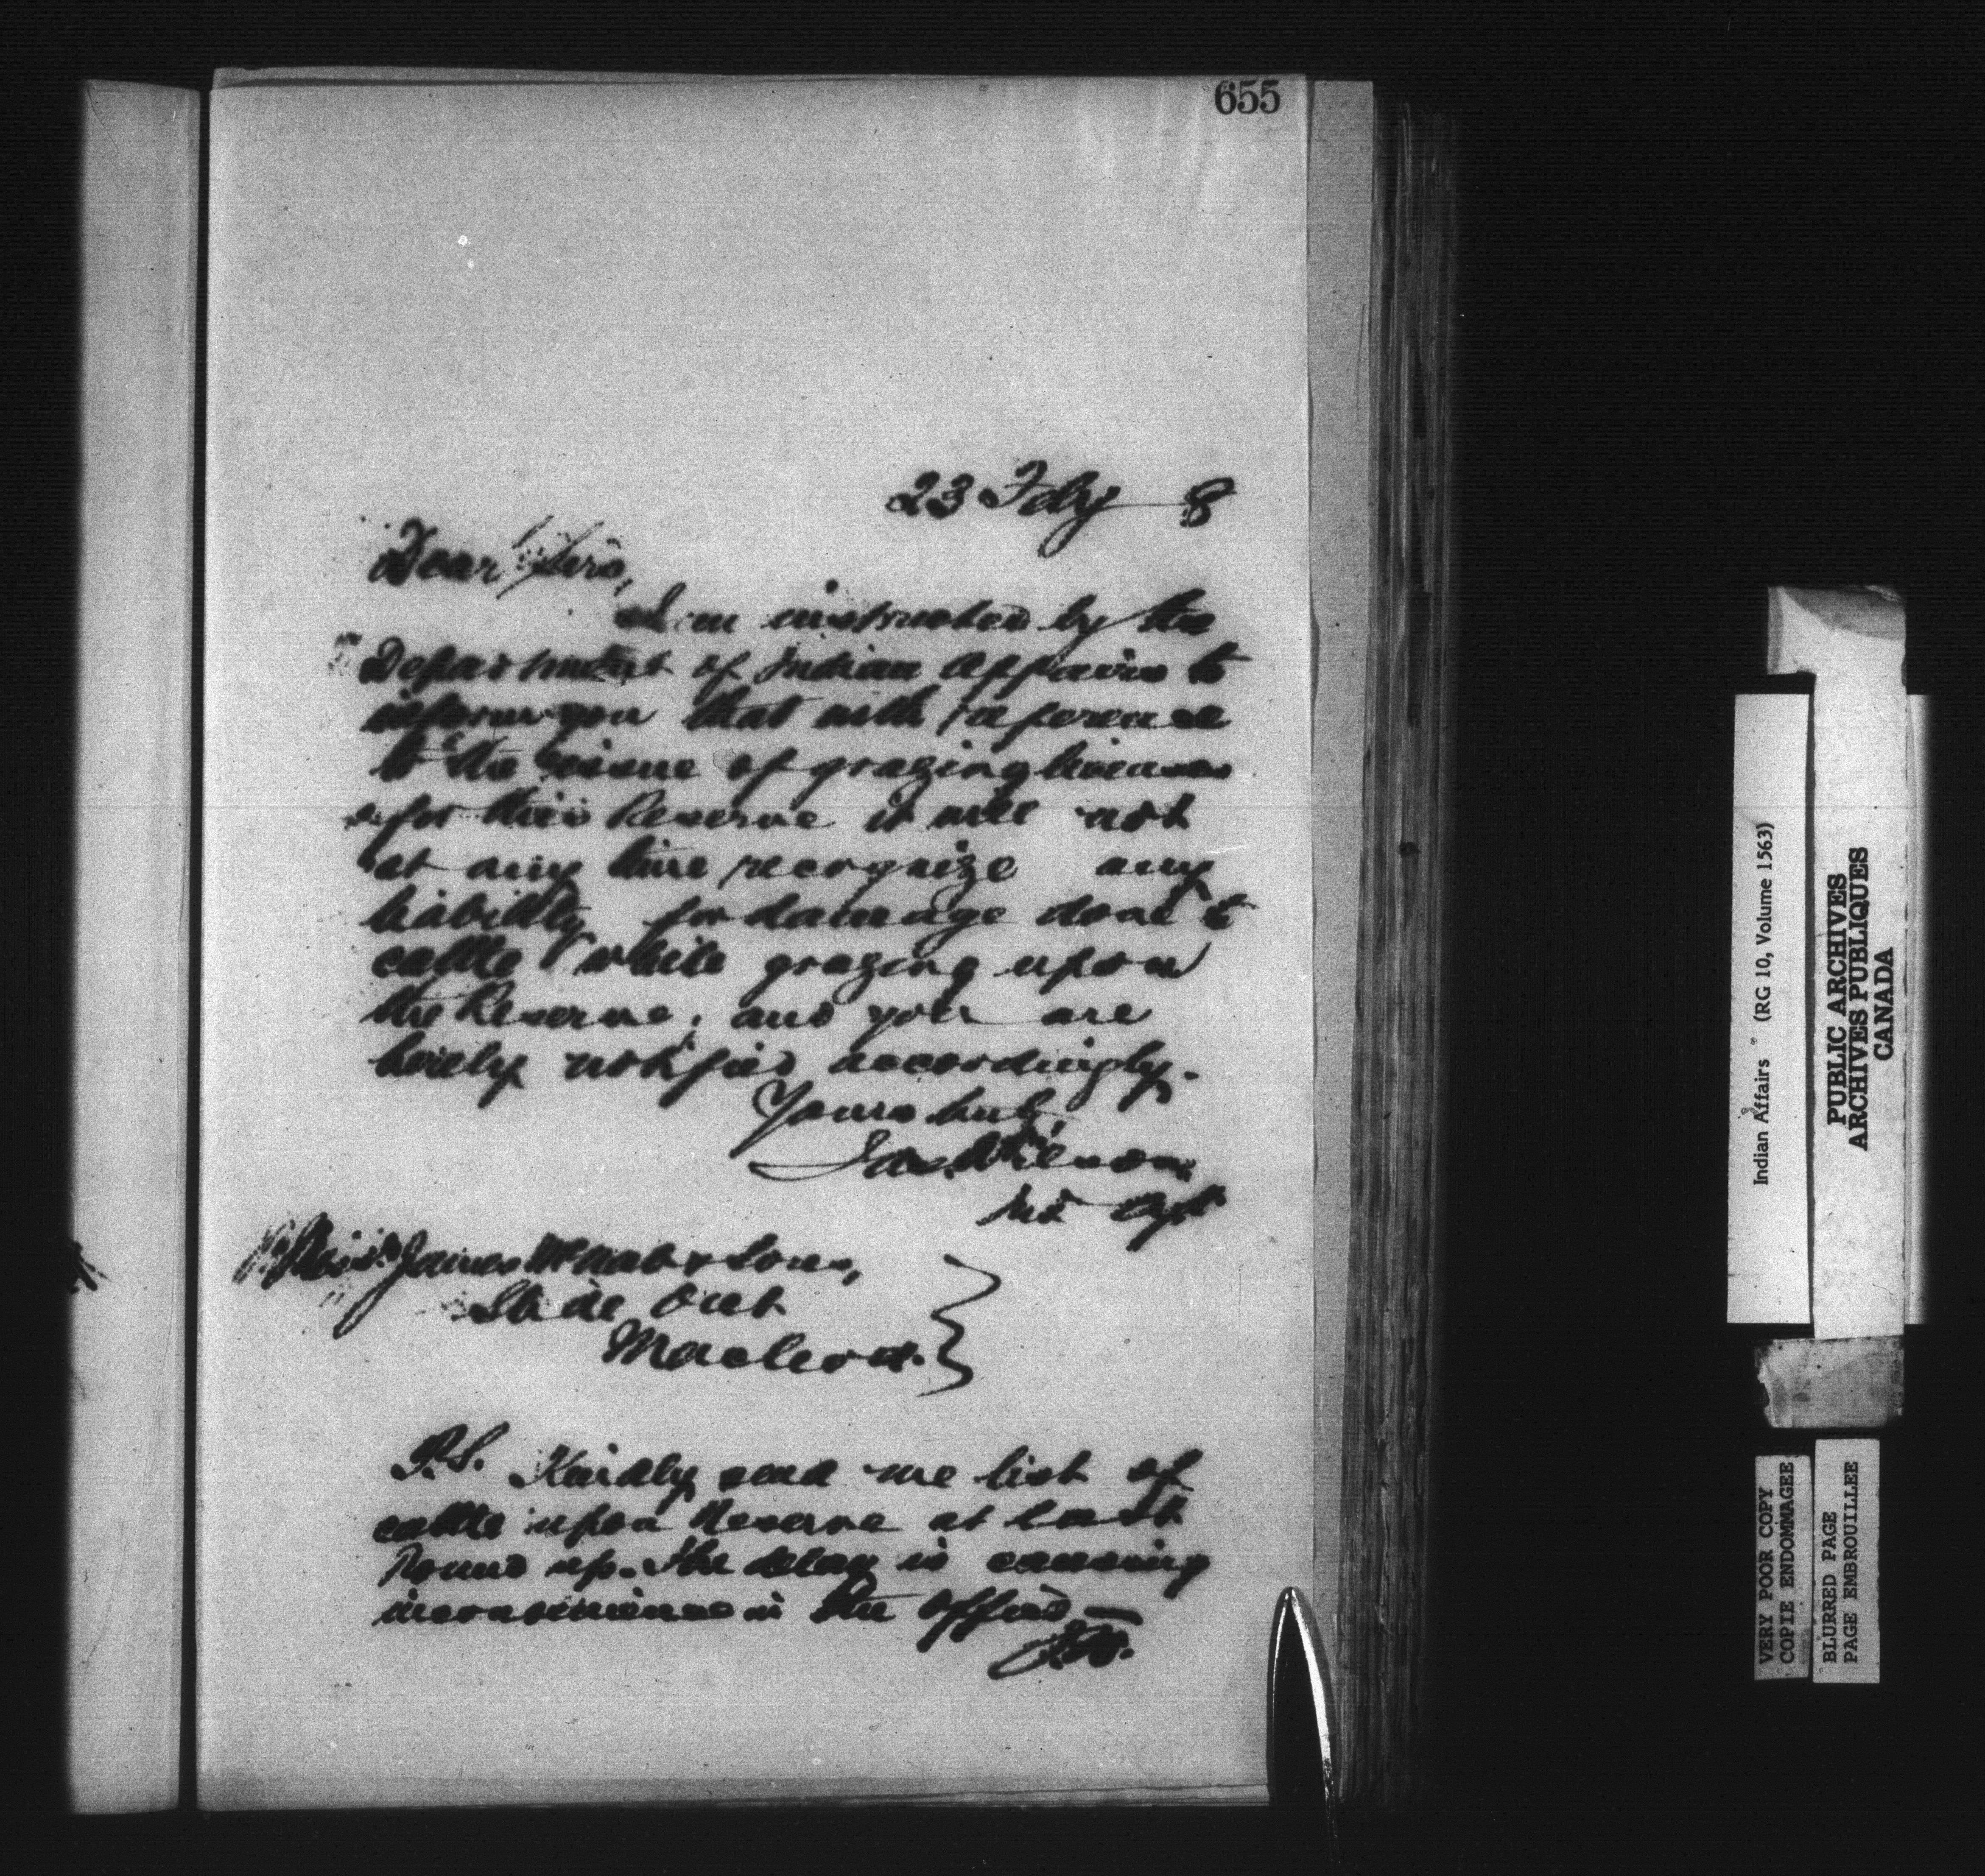 655
23 Feby 8
Dear Sirs,
I am instructed by the
Department of Indian Affairs to
inform you that with reference
to the issue of grazing licenses
for this Reserve it will not
at any time recognize any
liability for damage done to
cattle while grazing upon
the Reserve, and you are
hereby notified accordingly.
Yours truly
Jas. Wilson
Ind Agt
James McNab & Sons,
Slide Out
Macleod.
P.S. Kindly send me list of
cattle upon Reserve at last
Round up. The delay is causing
inconvenience in the office
J.W.
Indian Affairs (RG 10, Volume 1563)
PUBLIC ARCHIVES
ARCHIVES PUBLIQUES
CANADA
VERY POOR COPY
COPIE ENDOMMAGEE
BLURRED PAGE
PAGE EMBROUILLEE